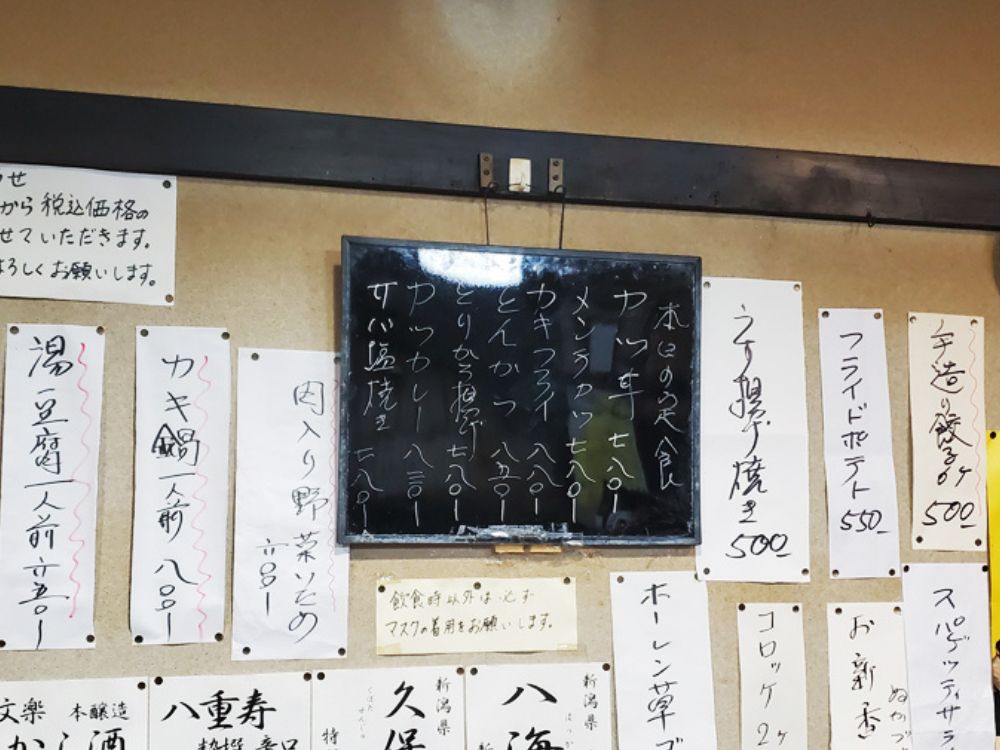 から税込価格の
せていただきます。
よろしくお願いします。
湯豆腐一人前 六五〇ー
カキ鍋一人前 八〇〇ー
肉入り野菜いため
六〇〇ー
本日の定食
カツ丼 七八〇ー
メンチカツ 七八〇ー
カキフライ 八八〇ー
とんかつ 八五〇ー
とりから揚げ 七八〇ー
カツカレー 八三〇ー
サバ塩焼き 七八〇ー
うす揚げ焼き 500-
フライドポテト 550-
手造り餃子6ケ
500-
飲食時以外は必ず
マスクの着用をお願いします。
ホーレン草
コロッケ 2ケ
お新香
ぬかづ
スパゲッティサラ
文楽 本醸造
八重寿
新潟県
久保
新潟県
八海